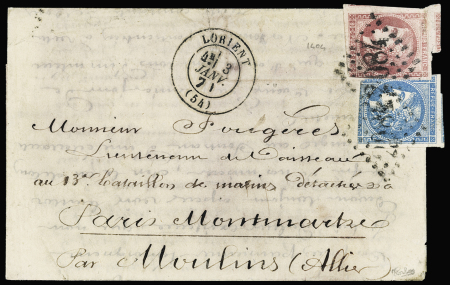 LORIENT
3
JANV.
71
(54)
Monsieur Fougères
Lieutenant de Vaisseau
au 13e bataillon de marins détaché à
Paris Montmartre
Par Moulins (Allier)